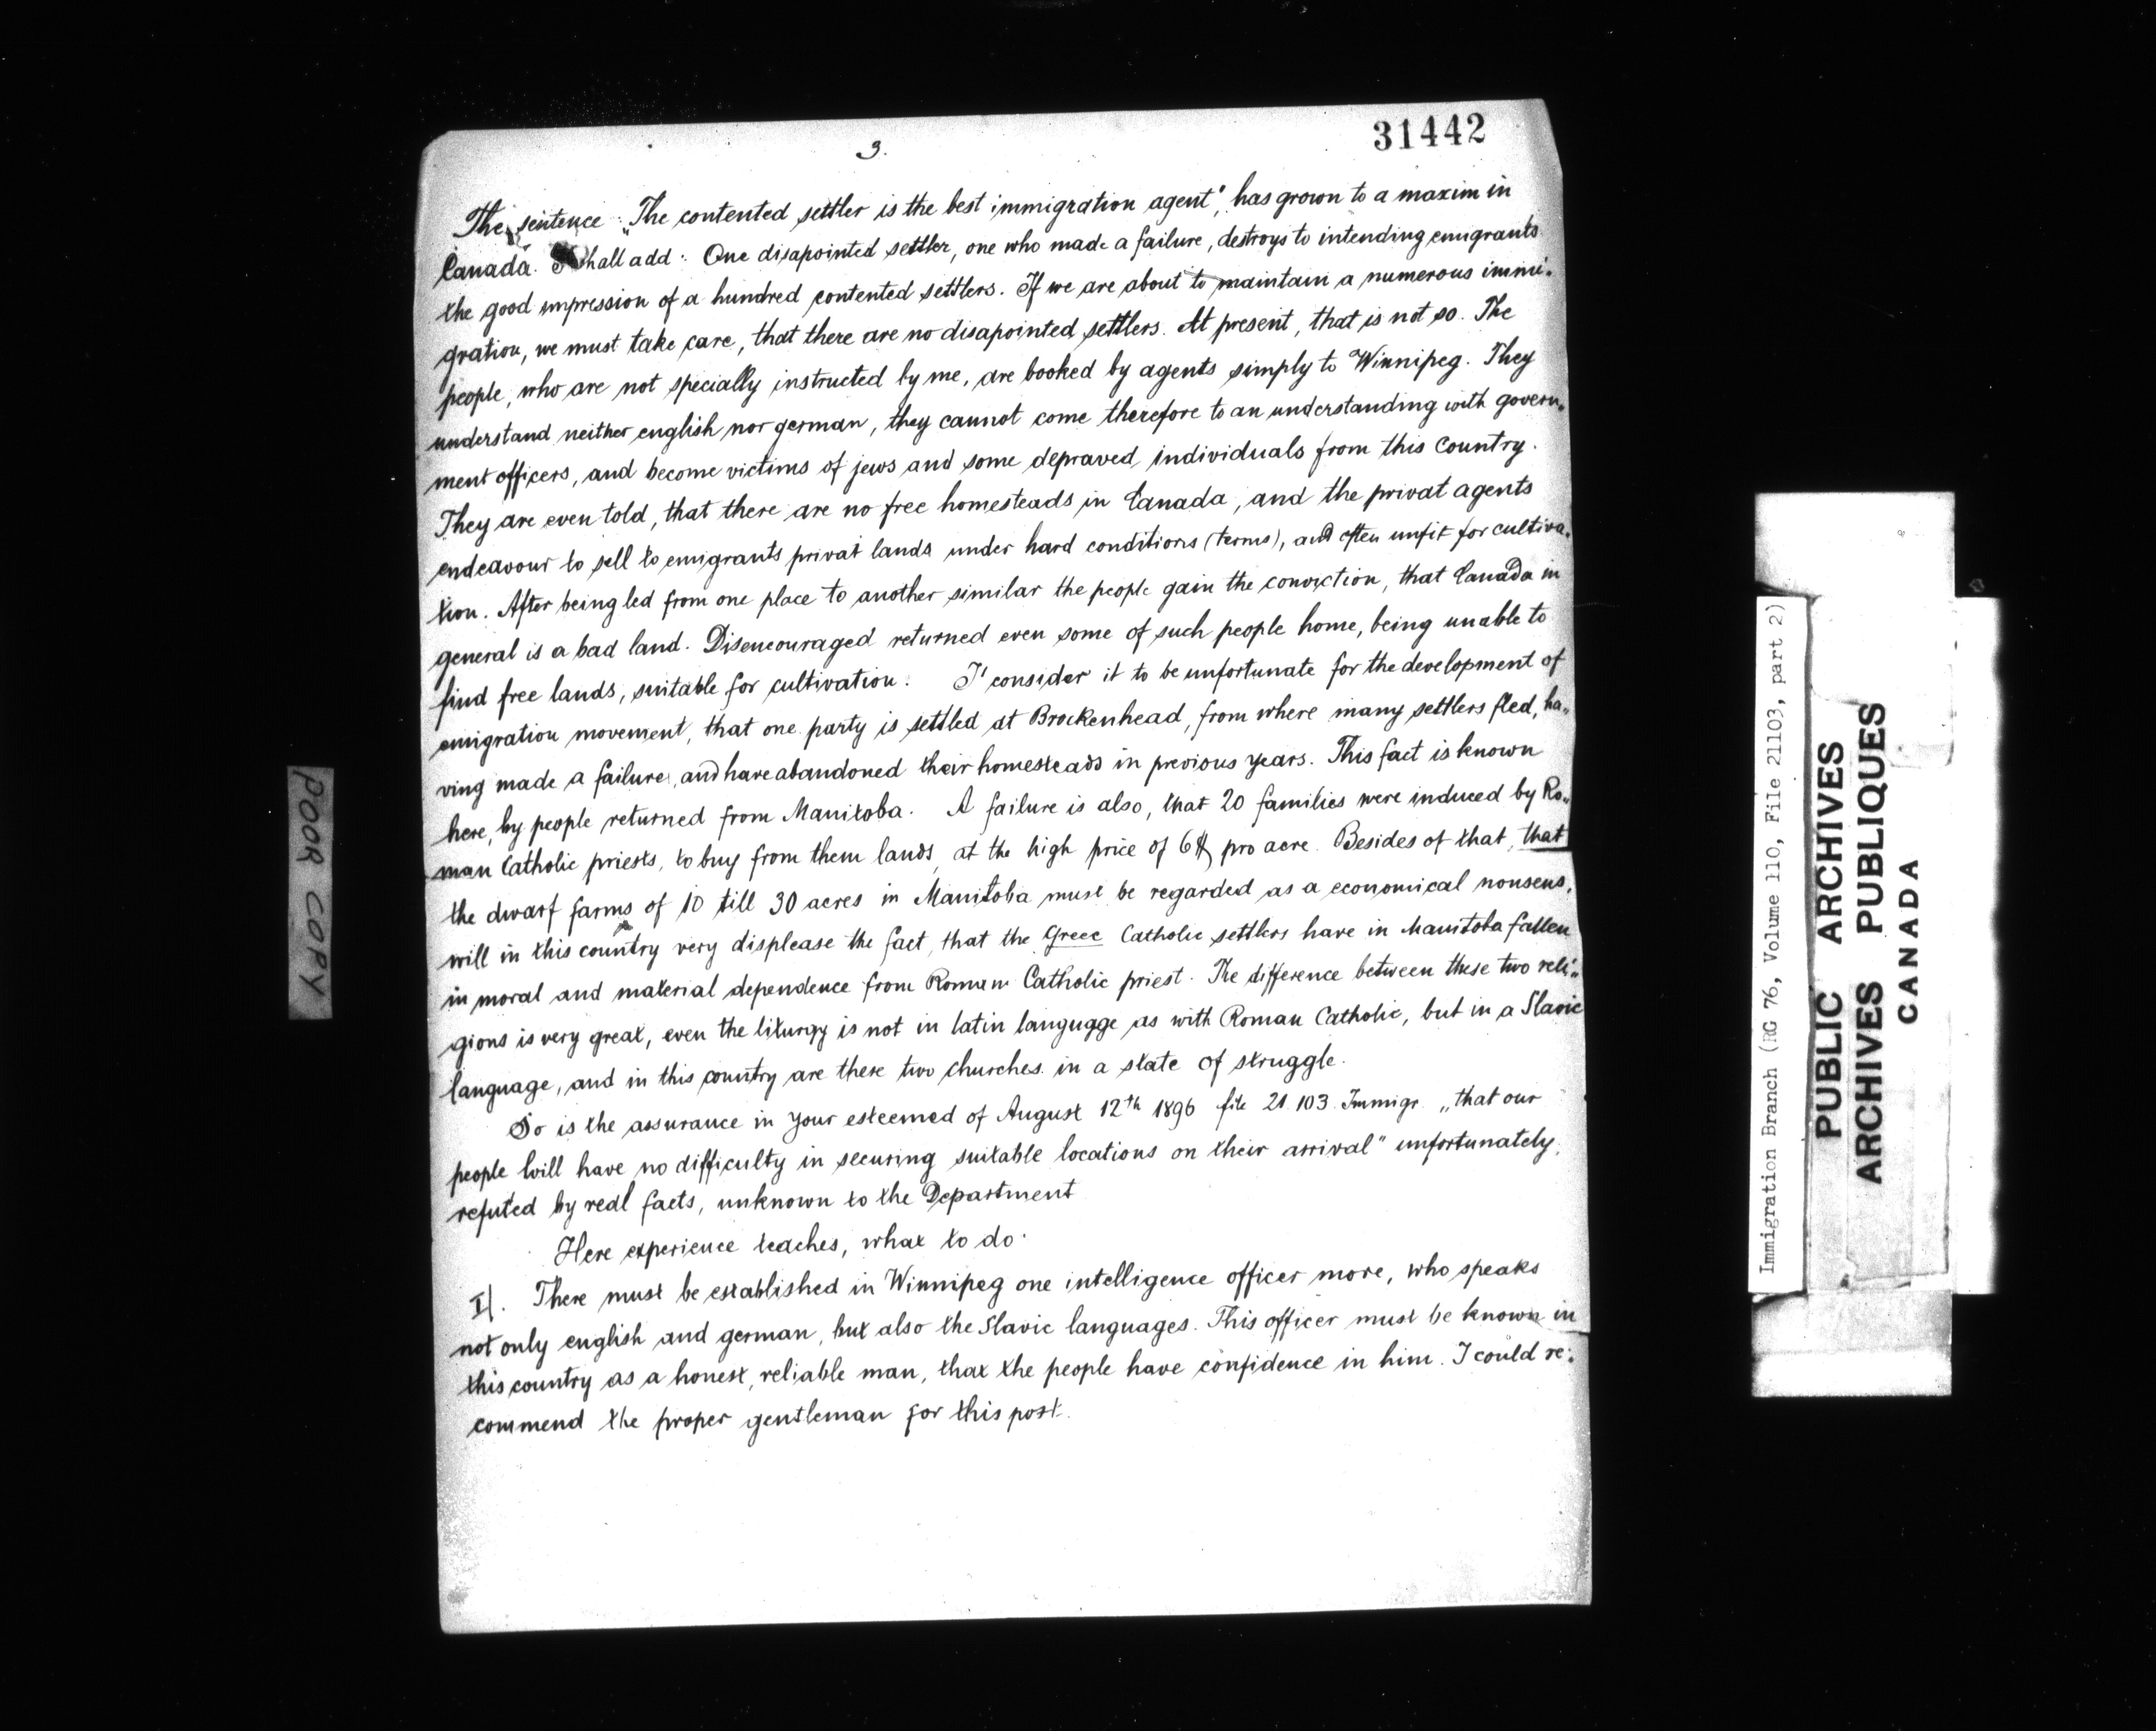 31442
3.
The sentence „The contented settler is the best immigration agent", has grown to a maxim in
Canada. I shall add: One disapointed settler, one who made a failure, destroys to intending emigrants
the good impression of a hundred contented settlers. If we are about to maintain a numerous immi-
gration, we must take care, that there are no disapointed settlers. At present, that is not so. The
people, who are not specially instructed by me, are booked by agents simply to Winnipeg. They
understand neither english nor german, they cannot come therefore to an understanding with govern-
ment officers, and become victims of jews and some depraved individuals from this country.
They are even told, that there are no free homesteads in Canada, and the privat agents
endeavour to sell to emigrants privat lands under hard conditions (terms), and often unfit for cultiva-
tion. After being led from one place to another similar the people gain the conviction, that Canada in
general is a bad land. Disencouraged returned even some of such people home, being unable to
find free lands, suitable for cultivation. I consider it to be unfortunate for the development of
emigration movement, that one party is settled at Brockenhead, from where many settlers fled, ha-
ving made a failure, and have abandoned their homesteads in previous years. This fact is known
here, by people returned from Manitoba. A failure is also, that 20 families were induced by Ro-
man Catholic priests, to buy from them lands, at the high price of 6$ pro acre. Besides of that, that
the dwarf farms of 10 till 30 acres in Manitoba must be regarded as a economical nonsens,
will in this country very displease the fact, that the Greec Catholic settlers have in Manitoba fallen
in moral and material dependence from Roman Catholic priest. The difference between these two reli-
gions is very great, even the liturgy is not in latin langugge as with Roman Catholic, but in a Slavic
language, and in this country are these two churches in a state of struggle.
So is the assurance in your esteemed of August 12th 1896 file 21.103 Immigr. „that our
people will have no difficulty in securing suitable locations on their arrival" unfortunately,
refuted by real facts, unknown to the Department
Here experience teaches, what to do.
I/. There must be established in Winnipeg one intelligence officer more, who speaks
not only english and german, but also the Slavic languages. This officer must be known in
this country as a honest, reliable man, that the people have confidence in him. I could re-
commend the proper gentleman for this post.
POOR COPY
Immigration Branch (RG 76, Volume 110, File 21103, part 2)
PUBLIC ARCHIVES
ARCHIVES PUBLIQUES
CANADA